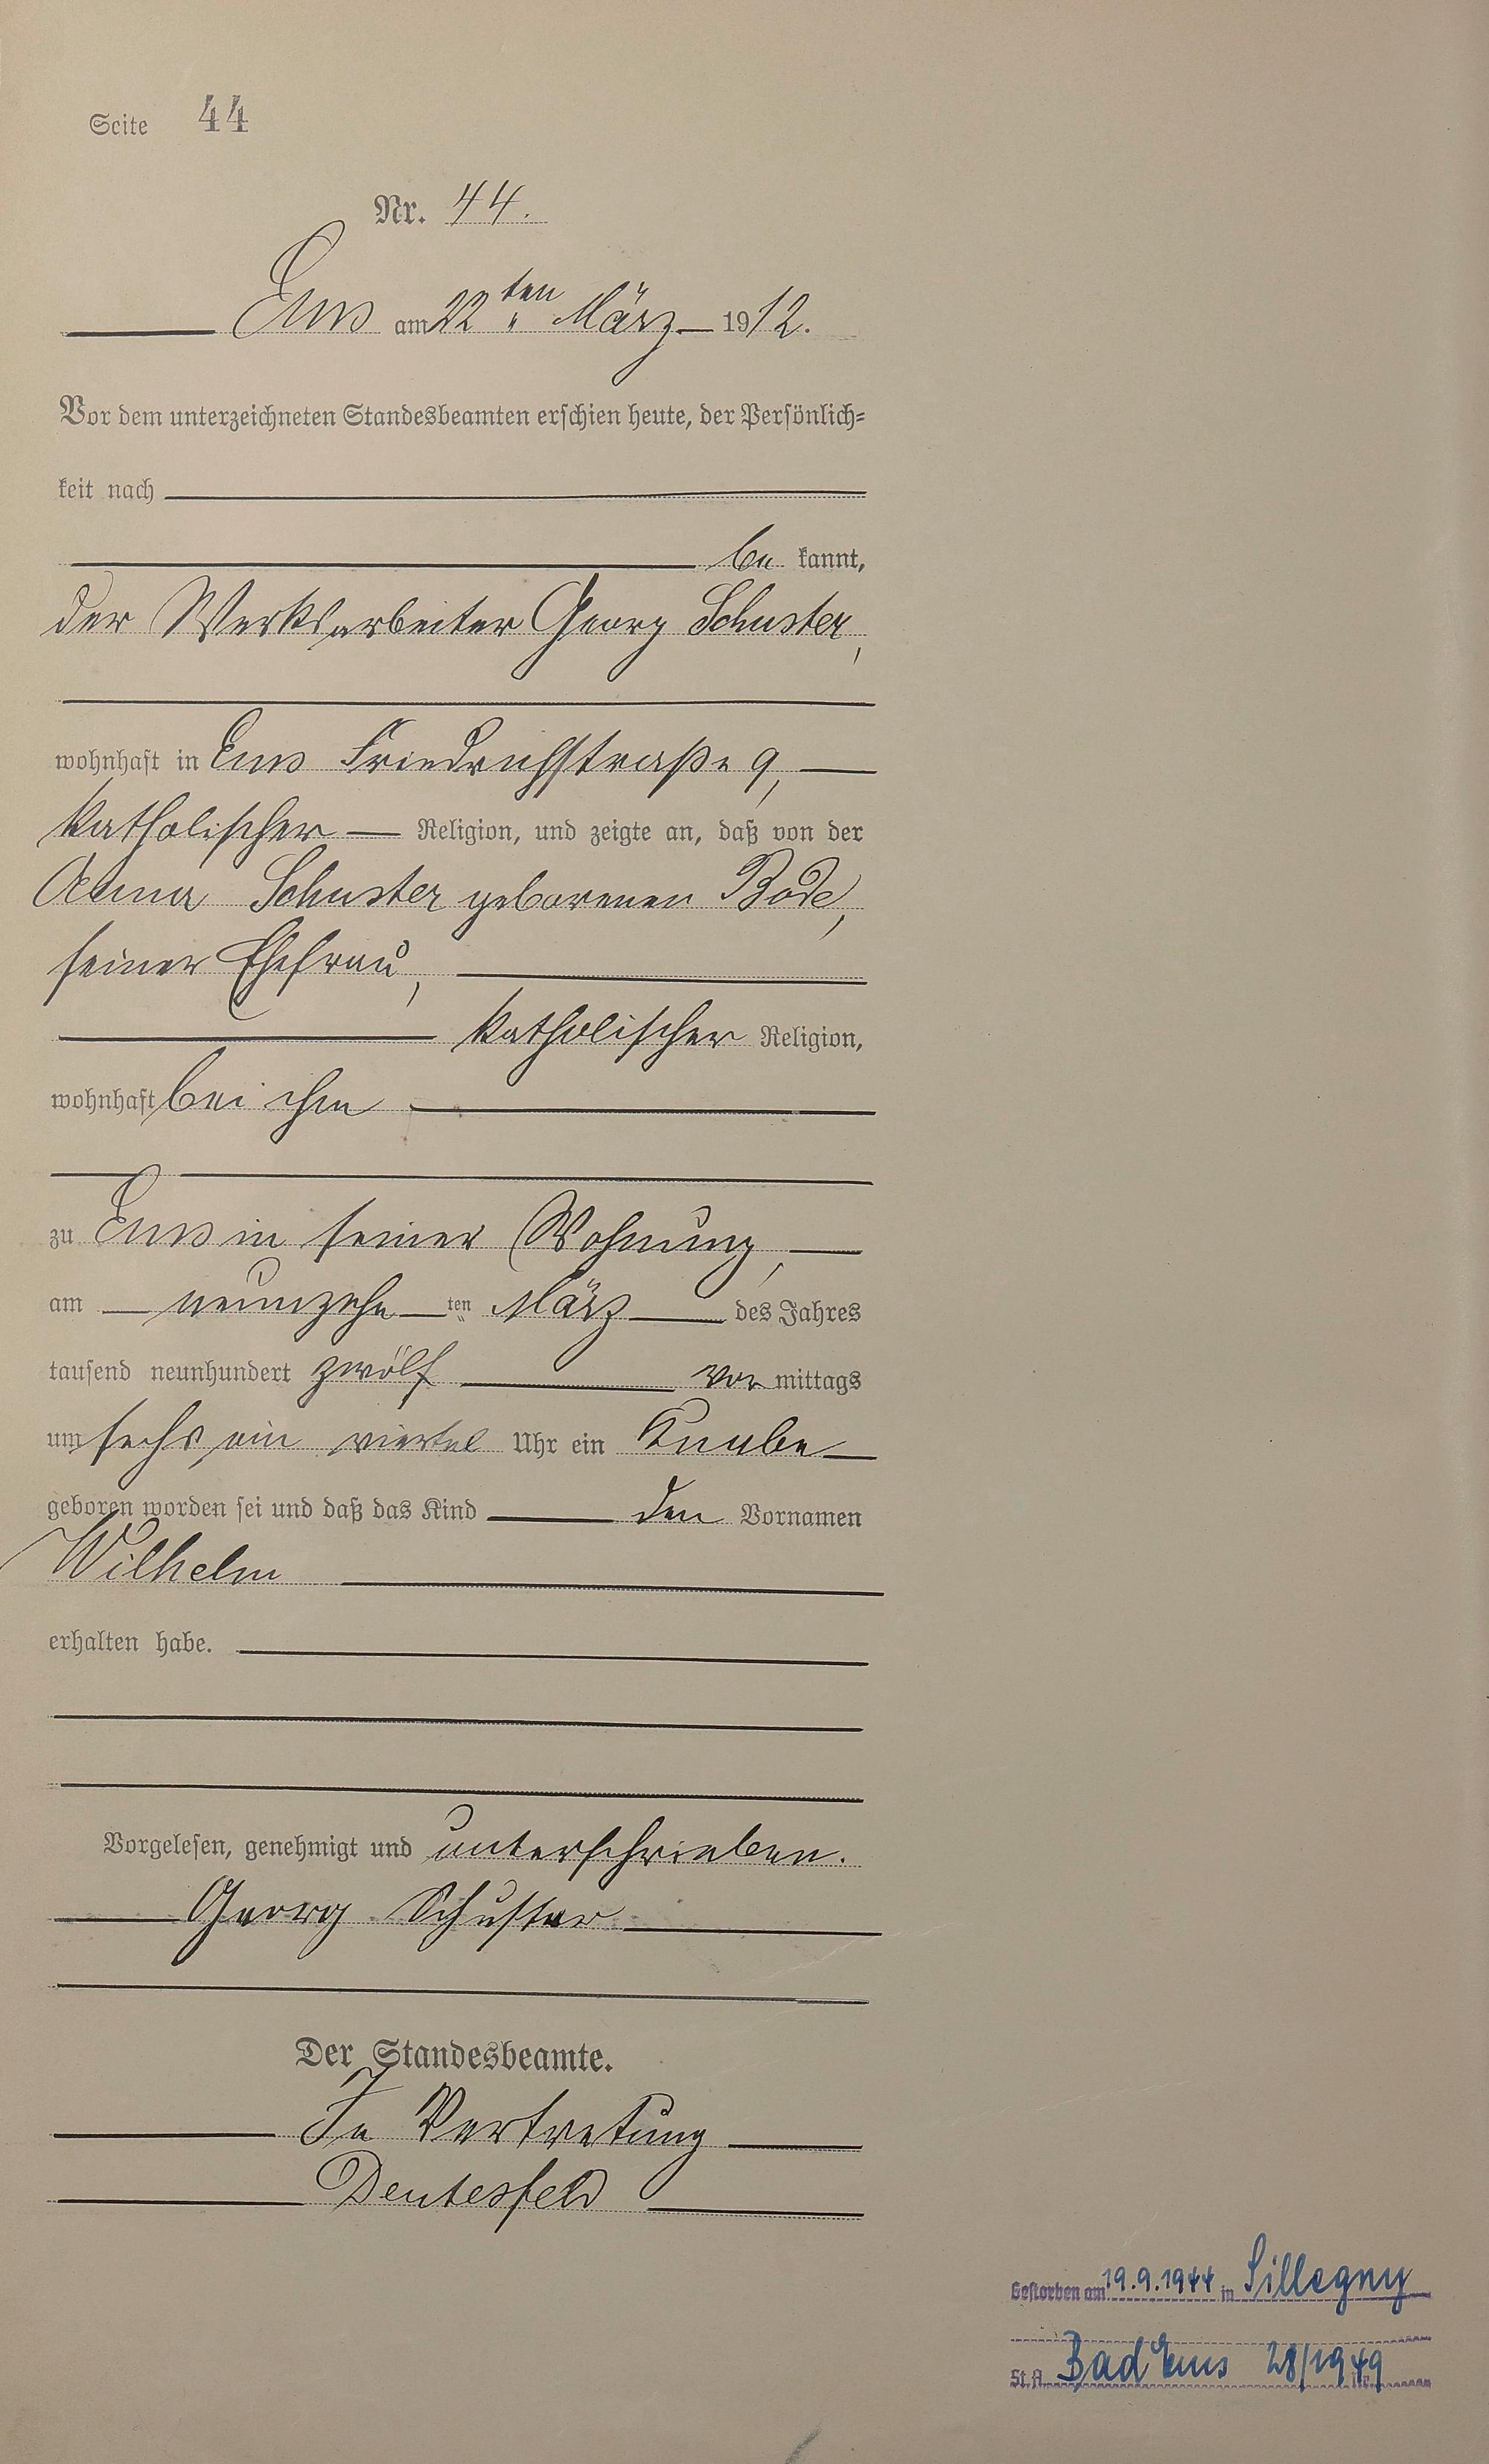 Seite 44
Nr. 44.
Ems am 22ten März 1912.
Vor dem unterzeichneten Standesbeamten erschien heute, der Persönlich-
keit nach
be kannt,
der Werksarbeiter Georg Schuster,
wohnhaft in Ems Friedrichstraße 9,
katholischer Religion, und zeigte an, daß von der
Anna Schuster geborenen Bode,
seiner Ehefrau,
katholischer Religion,
wohnhaft bei ihm
zu Ems in seiner Wohnung,
am neunzehn ten März des Jahres
tausend neunhundert zwölf vor mittags
um sechs ein viertel Uhr ein Knabe
geboren worden sei und daß das Kind den Vornamen
Wilhelm
erhalten habe.
Vorgelesen, genehmigt und unterschrieben.
Georg Schuster
Der Standesbeamte.
In Vertretung
Deutesfeld
Gestorben am 19.9.1944 in Sillegny
St.A. Bad Ems 28/1949